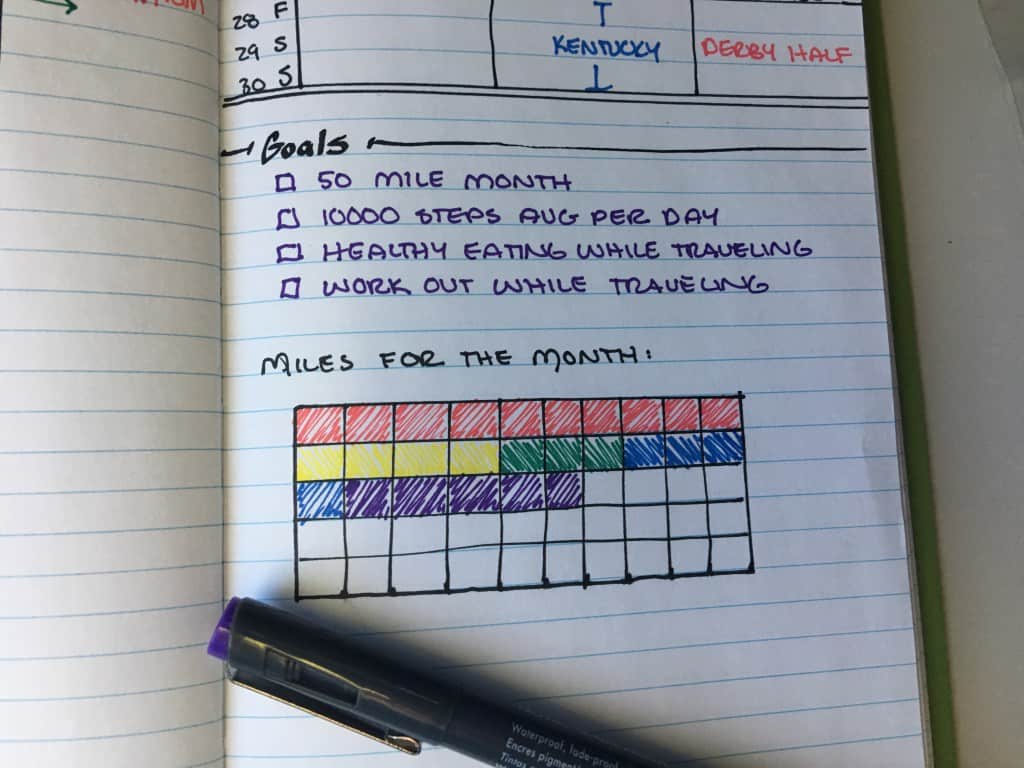 28 F
29 S KENTUCKY DERBY HALF
30 S
Goals
50 MILE MONTH
10000 STEPS AVG PER DAY
HEALTHY EATING WHILE TRAVELING
WORK OUT WHILE TRAVELING
MILES FOR THE MONTH:
Waterproof, fade-proof
Encres pigment
Tintas